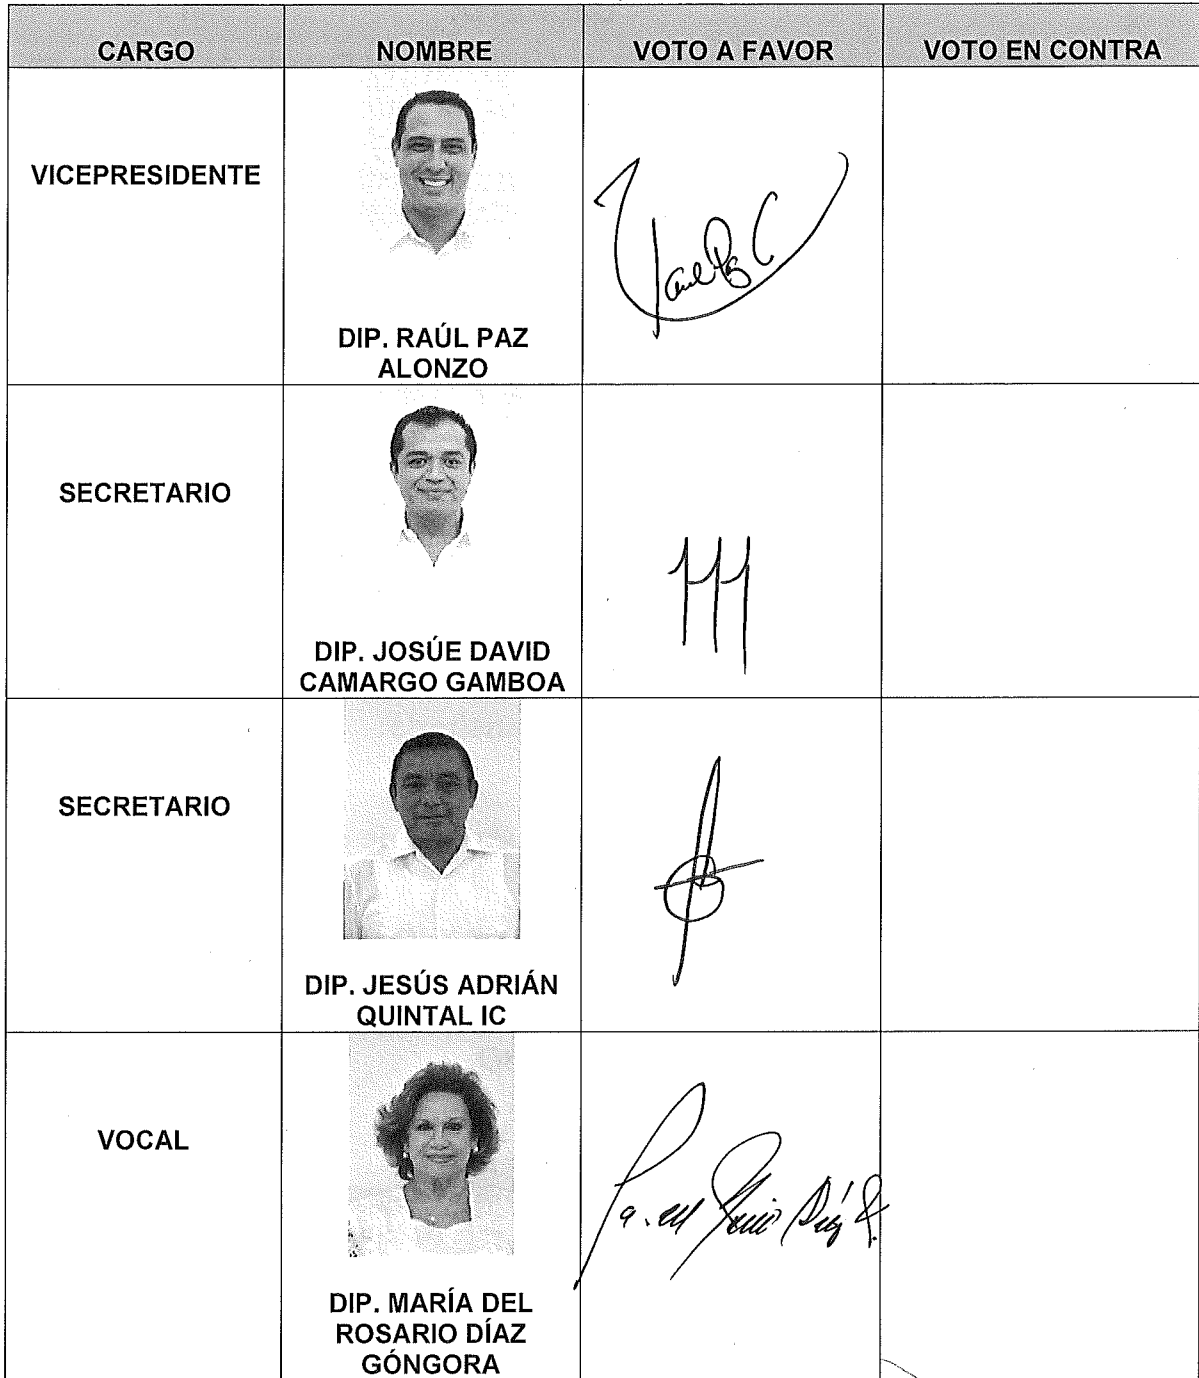 CARGO NOMBRE VOTO A FAVOR VOTO EN CONTRA
VICEPRESIDENTE
DIP. RAÚL PAZ
ALONZO
SECRETARIO
DIP. JOSÚE DAVID
CAMARGO GAMBOA
SECRETARIO
DIP. JESÚS ADRIÁN
QUINTAL IC
VOCAL
DIP. MARÍA DEL
ROSARIO DÍAZ
GÓNGORA